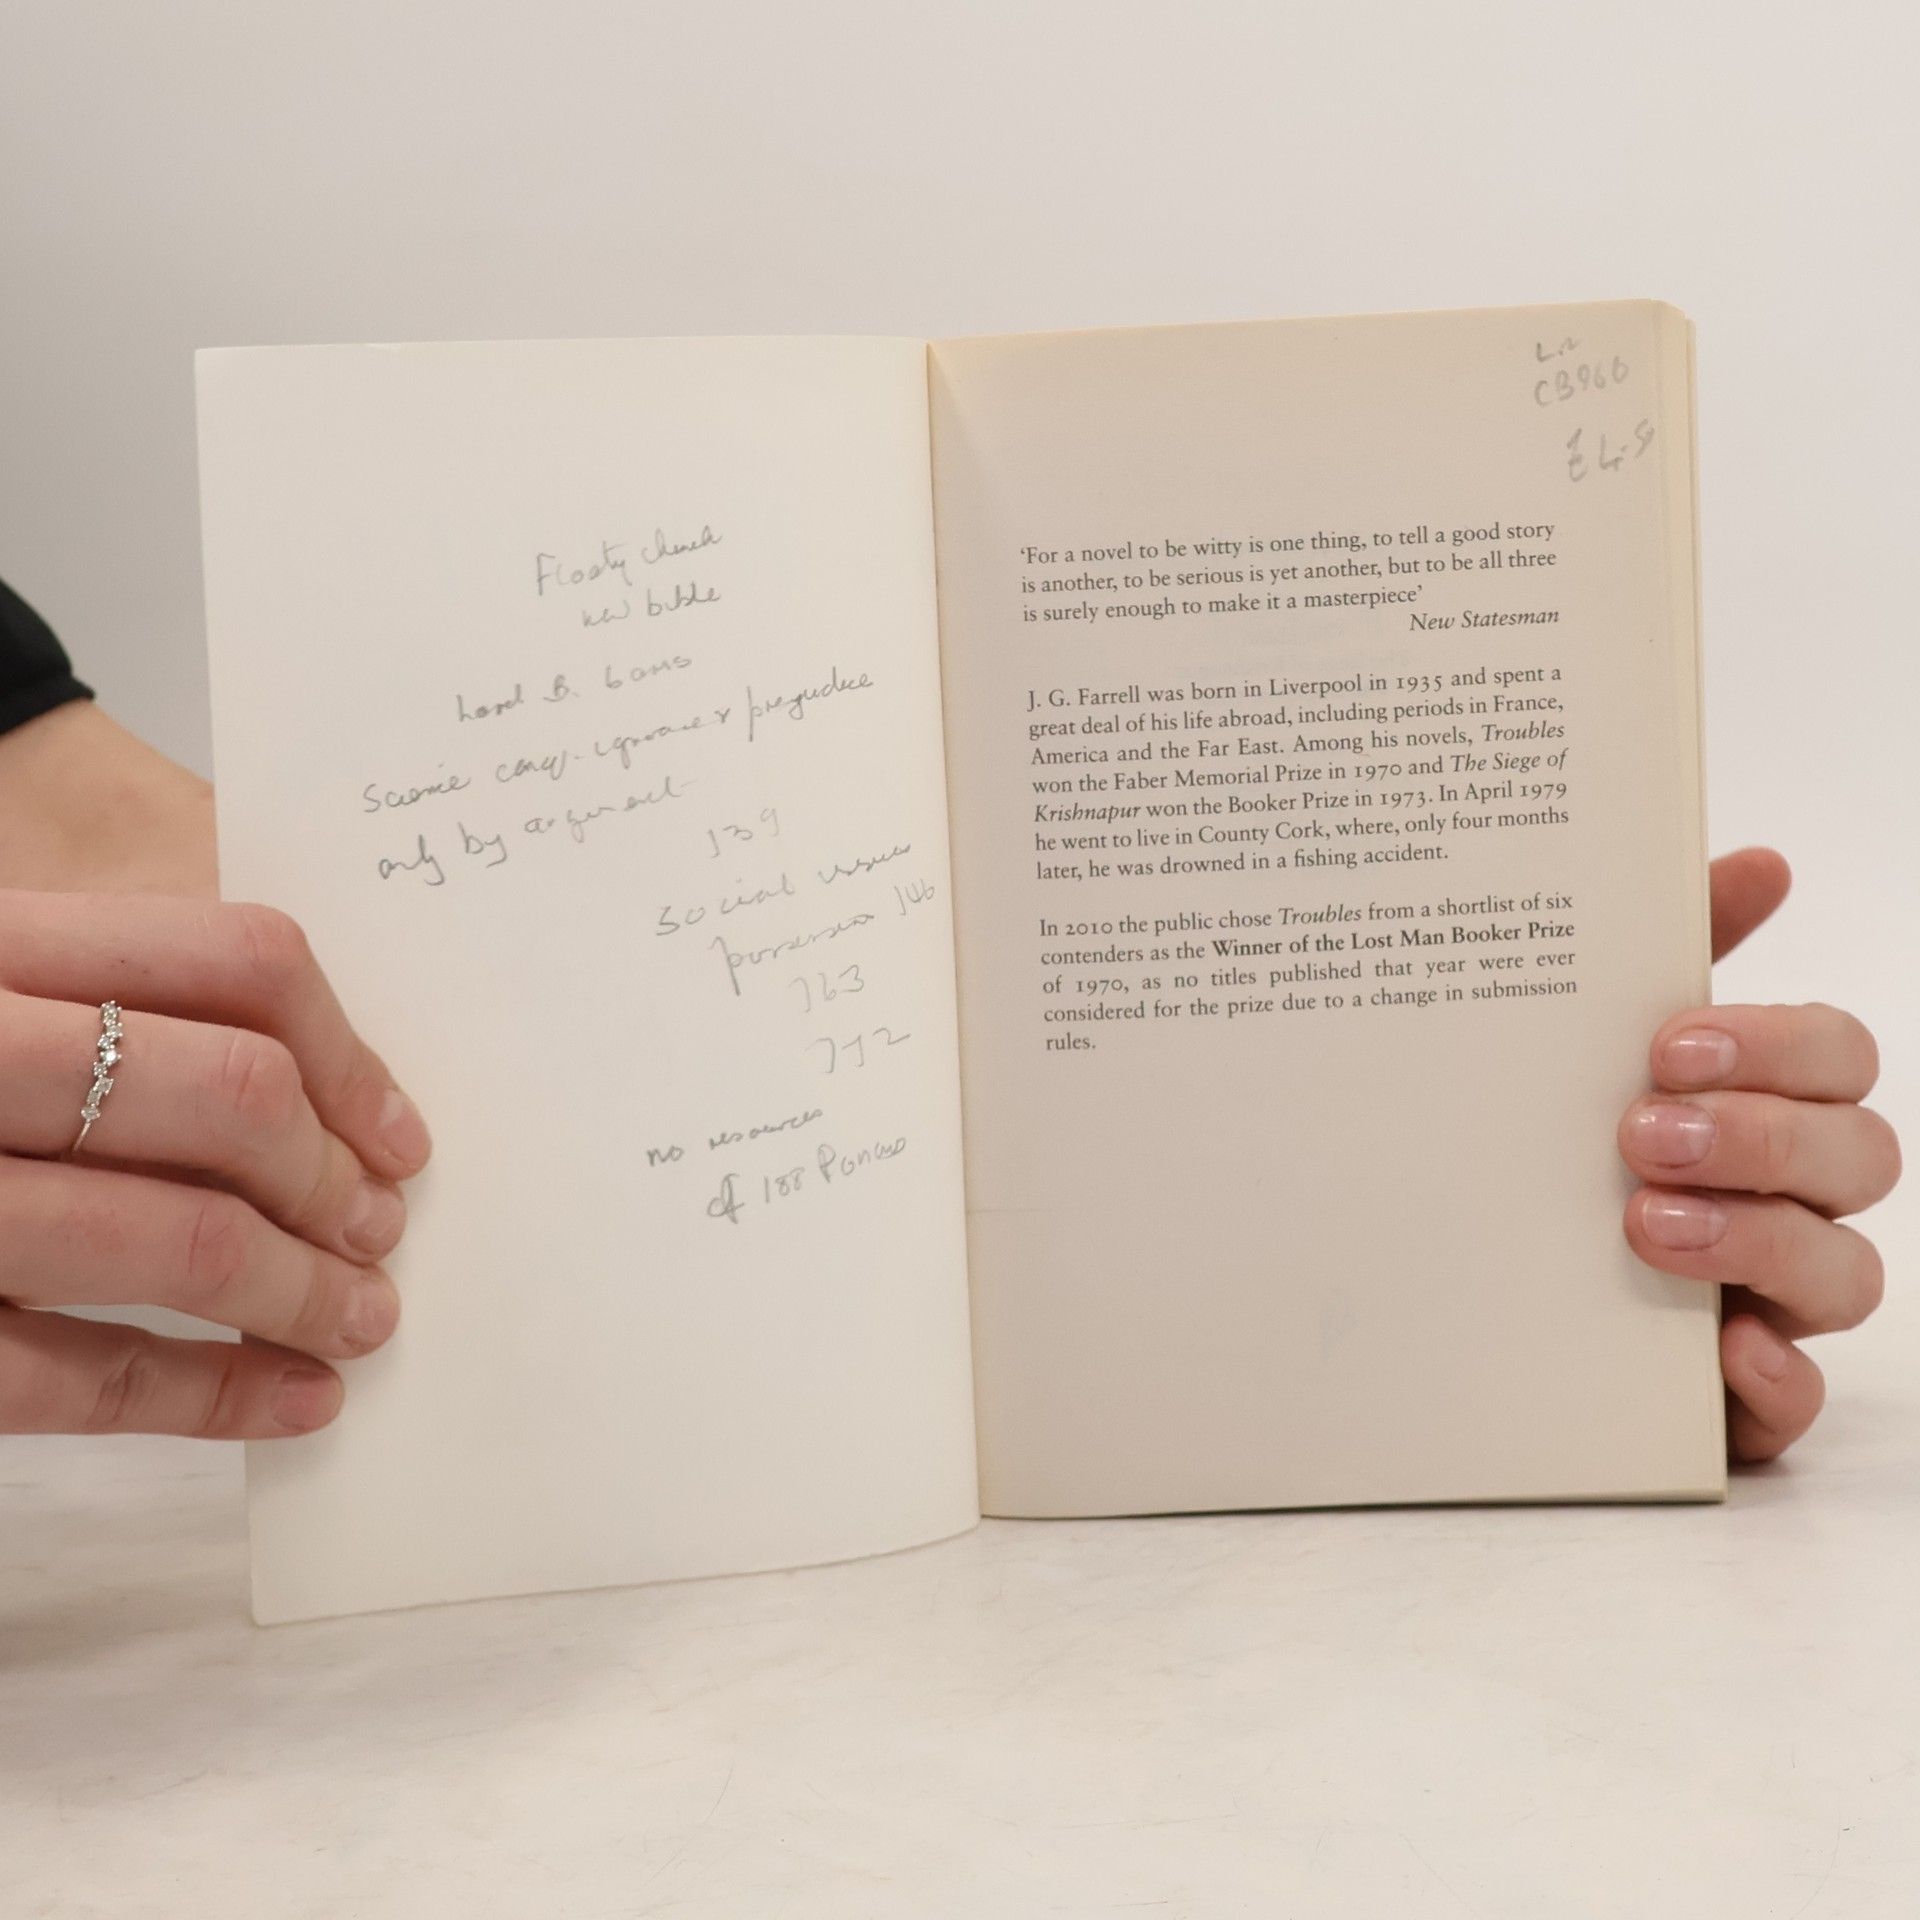 Floaty church
new bible
Lord B.
Science conq. ignorance & prejudice
only by argument
139
Social
possession 146
163
no resources
of 188
CB960
£4.50
‘For a novel to be witty is one thing, to tell a good story
is another, to be serious is yet another, but to be all three
is surely enough to make it a masterpiece’
New Statesman
J. G. Farrell was born in Liverpool in 1935 and spent a
great deal of his life abroad, including periods in France,
America and the Far East. Among his novels, Troubles
won the Faber Memorial Prize in 1970 and The Siege of
Krishnapur won the Booker Prize in 1973. In April 1979
he went to live in County Cork, where, only four months
later, he was drowned in a fishing accident.
In 2010 the public chose Troubles from a shortlist of six
contenders as the Winner of the Lost Man Booker Prize
of 1970, as no titles published that year were ever
considered for the prize due to a change in submission
rules.